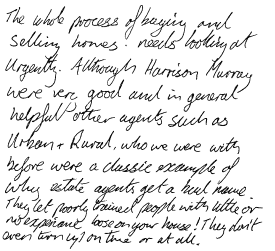 The whole process of buying and
selling homes! needs looking at
urgently. Although Harrison Murray
were very good and in general
helpful other agents such as
Urban + Rural, who we were with
before were a classic example of
why estate agents get a bad name.
They let poorly trained people with little or
no experience loose on your house! They don't
even turn up on time or at all.